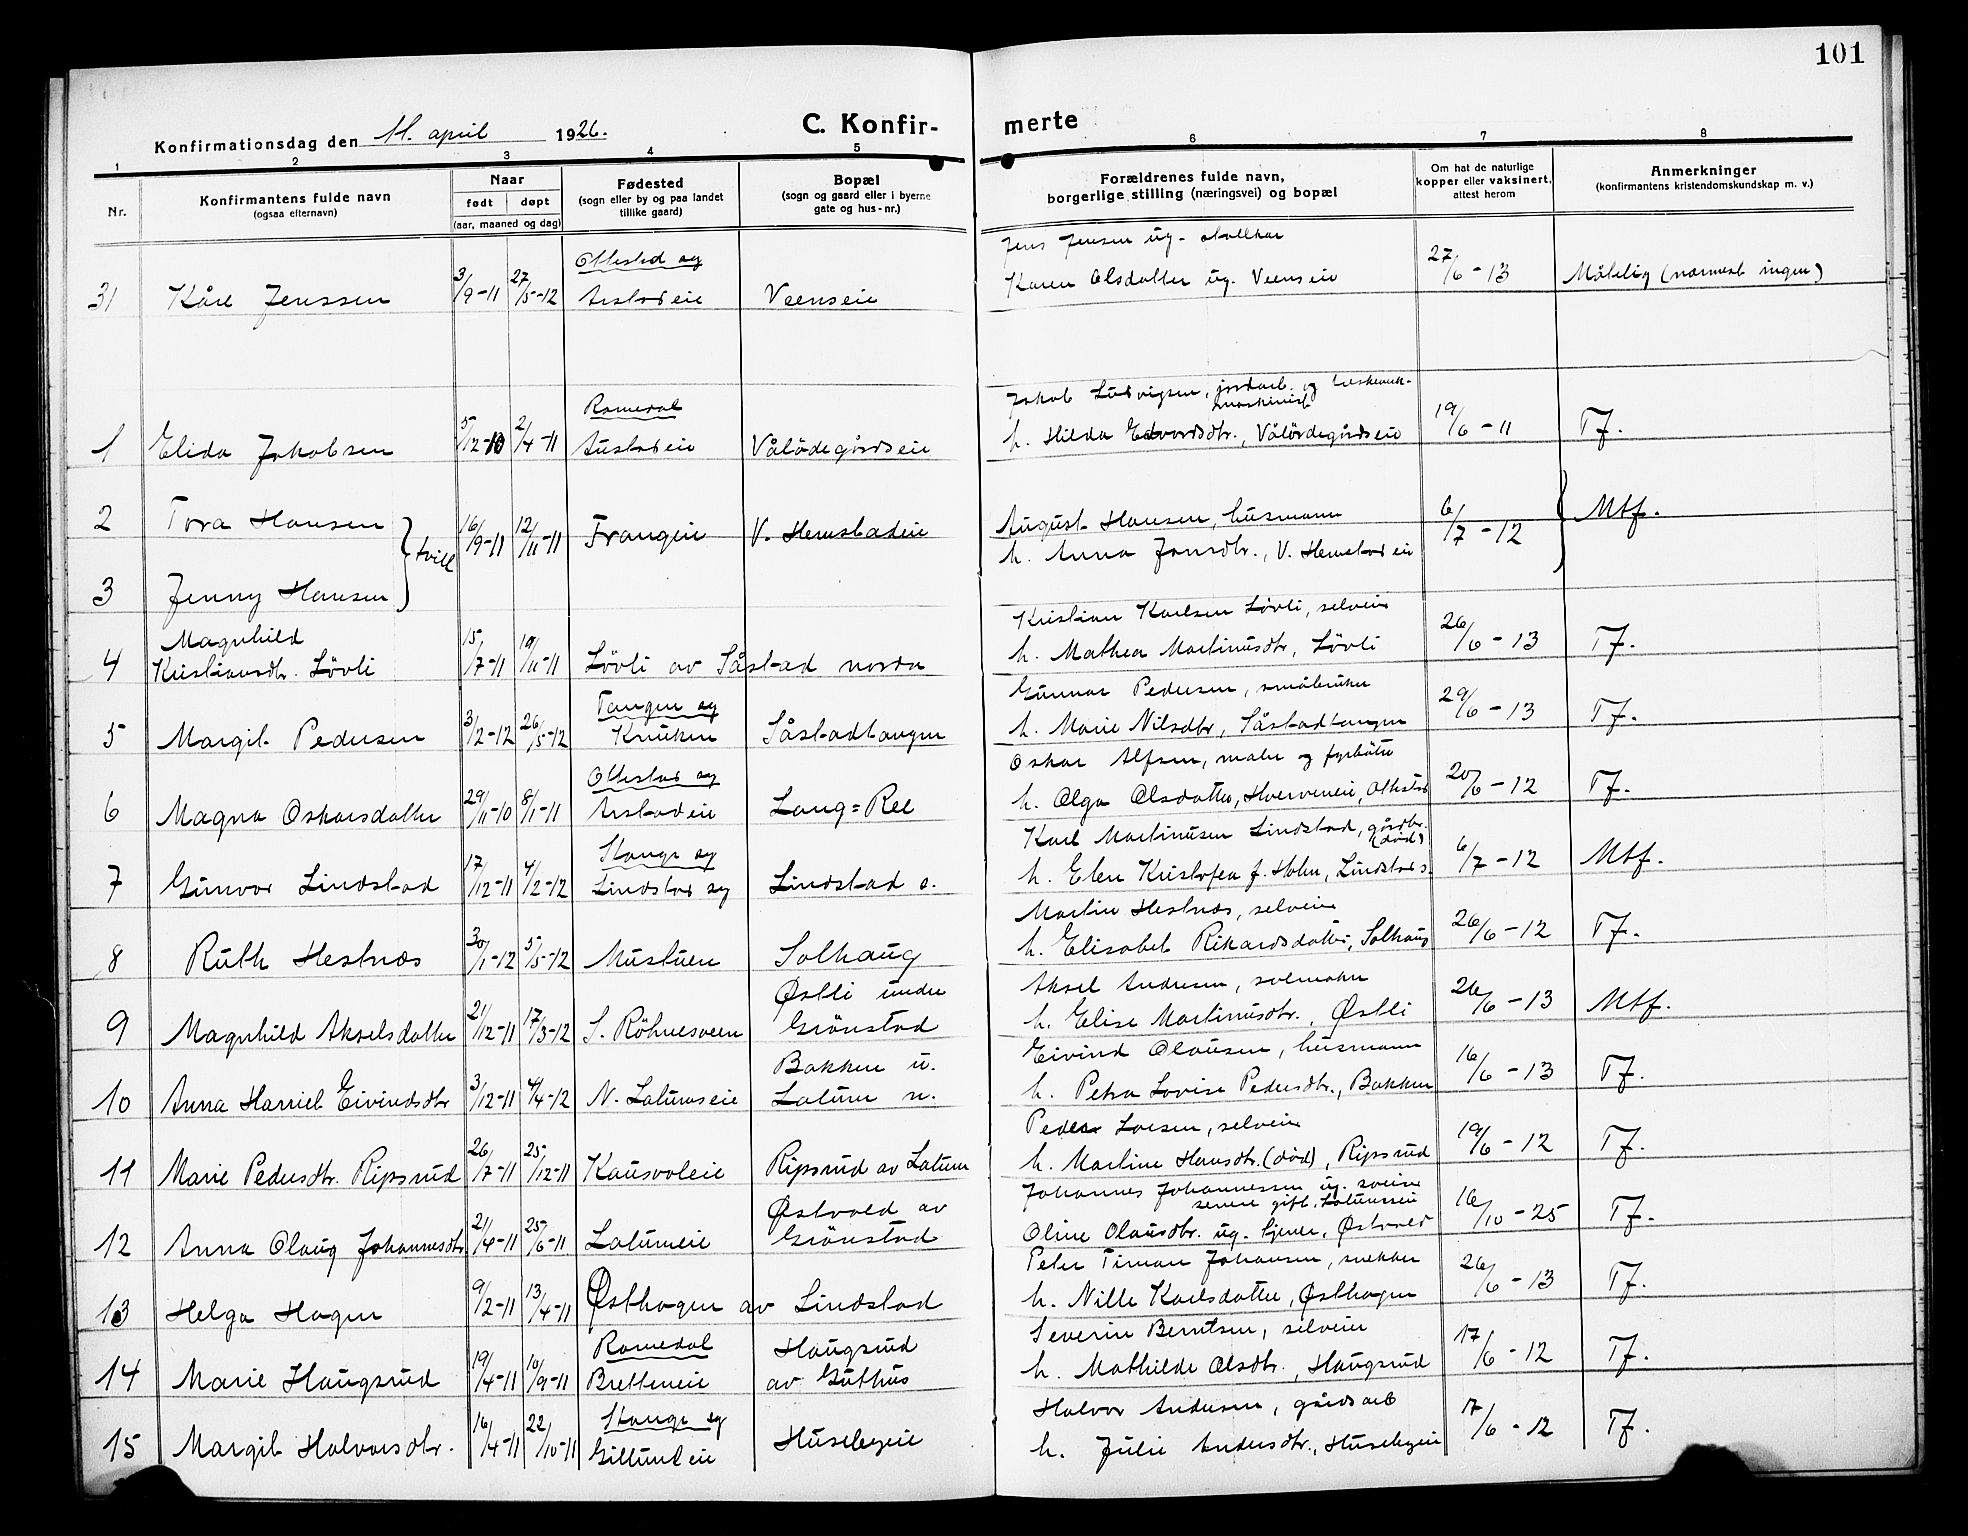 101
Konfirmationsdag den 11. april 1926.
C. Konfir-
merte
1 2 3 4 5 6 7 8
Nr.
Konfirmantens fulde navn
(ogsaa efternavn)
Naar
født døpt
(aar, maaned og dag)
Fødested
(sogn eller by og paa landet
tillike gaard)
Bopæl
(sogn og gaard eller i byerne
gate og hus-nr.)
Forældrenes fulde navn,
borgerlige stilling (næringsvei) og bopæl
Om hat de naturlige
kopper eller vaksinert,
attest herom
Anmerkninger
(konfirmantens kristendomskundskap m. v.)
Ottestad sg Jens Jensen ug.
31 Kåre Jenssen 3/9-11 27/5-12 Arstadeie Veenseie Karen Olsdatter ug. Veenseie 27/6-13 Måtelig (nærmest ingen)
Romedal Jakob Ludvigsen, jordarb. og
maskinist
1 Elida Jakobsen 5/12-10 2/4-11 Austadeie Vålødegårdseie h. Hilda Edvardsdtr., Vålødegårdseie 19/6-11 T.f.
2 Tora Hansen } tvill 16/9-11 12/11-11 Frangeie V. Hemstadeie August Hansen, husmann 6/7-12 } Mtf.
3 Jenny Hansen h. Anna Jonsdtr., V. Hemstadeie
Magnhild Kristian Karlsen Løvli, selveier
4 Kristiansdtr. Løvli 15/7-11 19/11-11 Løvli av Såstad nordre h. Mathea Martinusdtr, Løvli 26/6-13 T.f.
Tangen sg Gunnar Pedersen, småbruker
5 Margit Pedersen 3/2-12 26/5-12 Knuken Såstadtangen h. Marie Nilsdtr, Såstadtangen 29/6-13 T.f.
Ottestad sg Oskar Alfsen, maler og fyrbøter
6 Magna Oskarsdatter 29/11-10 8/1-11 Arstadeie Lang=Ree h. Olga Olsdatter, Hverveneie, Ottestad 20/6-12 T.f.
Stange sg Karl Martinusen Lindstad, gårdbr. (død)
7 Gunvor Lindstad 17/12-11 4/2-12 Lindstad sg Lindstad s. h. Elen Kristofea f. Holm, Lindstad s. 6/7-12 Mtf.
Martin Hestnæs, selveier
8 Ruth Hestnæs 30/1-12 5/5-12 Mustuen Solhaug h. Elisabet Rikardsdatter, Solhaug 26/6-12 T.f.
Østli under Aksel Andresen, salmaker
9 Magnhild Akselsdatter 21/12-11 17/3-12 S. Röhnesveen Grönstad h. Elise Martinusdtr., Østli 26/6-13 Mtf.
Bakken u. Eivind Olausen, husmann
10 Anna Harriet Eivindsdtr 3/12-11 4/4-12 N. Latumseie Latum n. h. Petra Lovise Pedersdtr., Bakken 16/6-13 T.f.
Peder Larsen, selveier
11 Marie Pedersdtr. Ripsrud 26/7-11 25/12-11 Kausvoleie Ripsrud av Latum h. Martine Hansdtr. (død), Ripsrud 19/6-12 T.f.
Østvold av Johannes Johannessen ug. sveiser
senere gift, Latumseie
12 Anna Olaug Johannesdtr. 21/4-11 25/6-11 Latumeie Grönstad Oline Olausdtr. ug. tjener, Østvold 16/10-25 T.f.
Peter Timan Johansen, snekker
13 Helga Hagen 9/2-11 13/4-11 Østhagen av Lindstad h. Nille Karlsdatter, Østhagen 26/6-13 T.f.
Romedal Haugsrud Severin Berntsen, selveier
14 Marie Haugsrud 19/4-11 10/9-11 Bretteneie av Guthus h. Mathilde Olsdtr., Haugsrud 17/6-12 T.f.
Stange sg Halvor Andersen, gårdsarb
15 Margit Halvorsdtr. 16/4-11 22/10-11 Gillundeie Husebyeie h. Julie Andersdtr., Husebyeie 17/6-12 T.f.